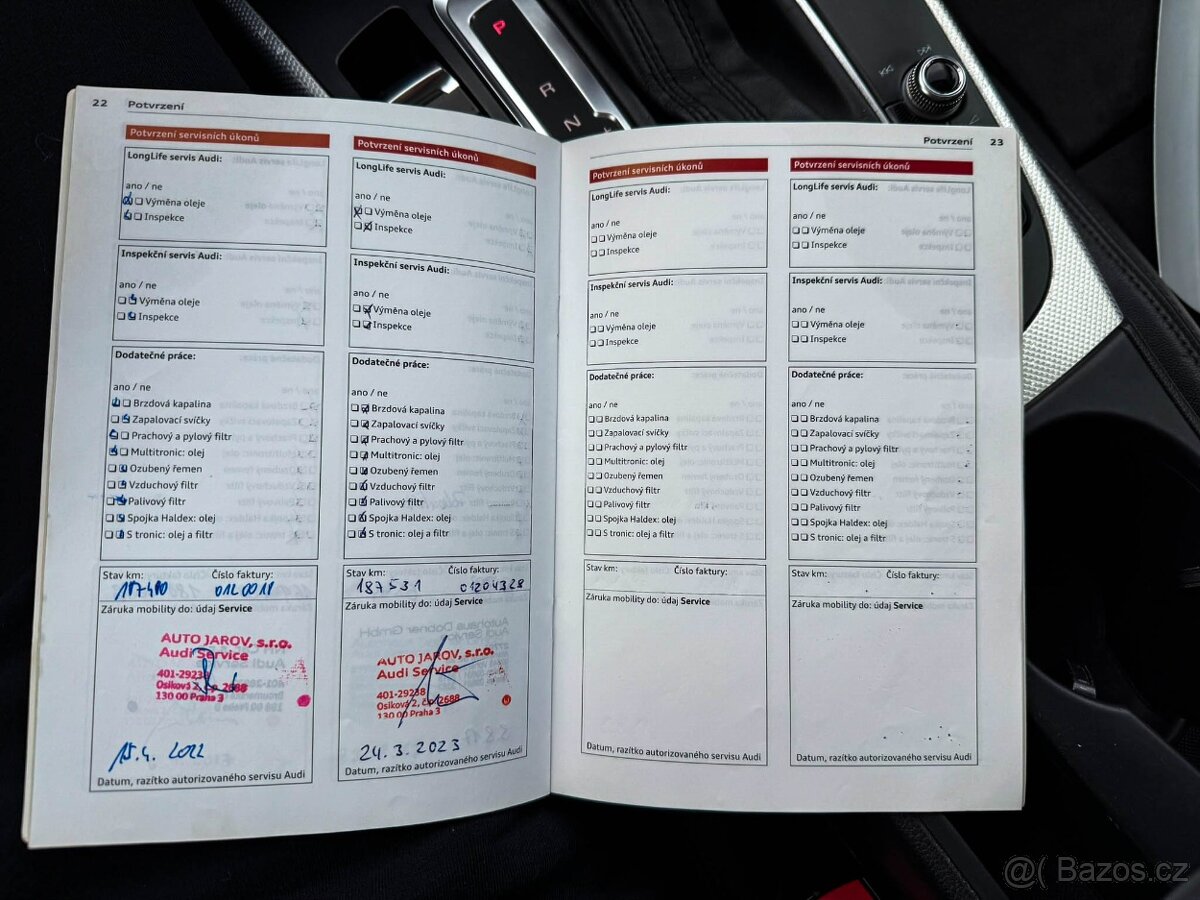 P
R
N
22 Potvrzení
Potvrzení servisních úkonů
LongLife servis Audi:
ano / ne
Výměna oleje
Inspekce
Inspekční servis Audi:
ano / ne
Výměna oleje
Inspekce
Dodatečné práce:
ano / ne
Brzdová kapalina
Zapalovací svíčky
Prachový a pylový filtr
Multitronic: olej
Ozubený řemen
Vzduchový filtr
Palivový filtr
Spojka Haldex: olej
S tronic: olej a filtr
Stav km: Číslo faktury:
Záruka mobility do: údaj Service
AUTO JAROV, s.r.o.
Audi Service
401-29238
Osiková 2, č.p. 2688
130 00 Praha 3
15.4. 2022
Datum, razítko autorizovaného servisu Audi
Potvrzení servisních úkonů
LongLife servis Audi:
ano / ne
Výměna oleje
Inspekce
Inspekční servis Audi:
ano / ne
Výměna oleje
Inspekce
Dodatečné práce:
ano / ne
Brzdová kapalina
Zapalovací svíčky
Prachový a pylový filtr
Multitronic: olej
Ozubený řemen
Vzduchový filtr
Palivový filtr
Spojka Haldex: olej
S tronic: olej a filtr
Stav km: Číslo faktury:
187531 01204328
Záruka mobility do: údaj Service
AUTO JAROV, s.r.o.
Audi Service
401-29238
Osiková 2, č.p. 2688
130 00 Praha 3
24.3.2023
Datum, razítko autorizovaného servisu Audi
Potvrzení 23
Potvrzení servisních úkonů
LongLife servis Audi:
ano / ne
Výměna oleje
Inspekce
Inspekční servis Audi:
ano / ne
Výměna oleje
Inspekce
Dodatečné práce:
ano / ne
Brzdová kapalina
Zapalovací svíčky
Prachový a pylový filtr
Multitronic: olej
Ozubený řemen
Vzduchový filtr
Palivový filtr
Spojka Haldex: olej
S tronic: olej a filtr
Stav km: Číslo faktury:
Záruka mobility do: údaj Service
Datum, razítko autorizovaného servisu Audi
Potvrzení servisních úkonů
LongLife servis Audi:
ano / ne
Výměna oleje
Inspekce
Inspekční servis Audi:
ano / ne
Výměna oleje
Inspekce
Dodatečné práce:
ano / ne
Brzdová kapalina
Zapalovací svíčky
Prachový a pylový filtr
Multitronic: olej
Ozubený řemen
Vzduchový filtr
Palivový filtr
Spojka Haldex: olej
S tronic: olej a filtr
Stav km: Číslo faktury:
Záruka mobility do: údaj Service
Datum, razítko autorizovaného servisu Audi
@( Bazos.cz